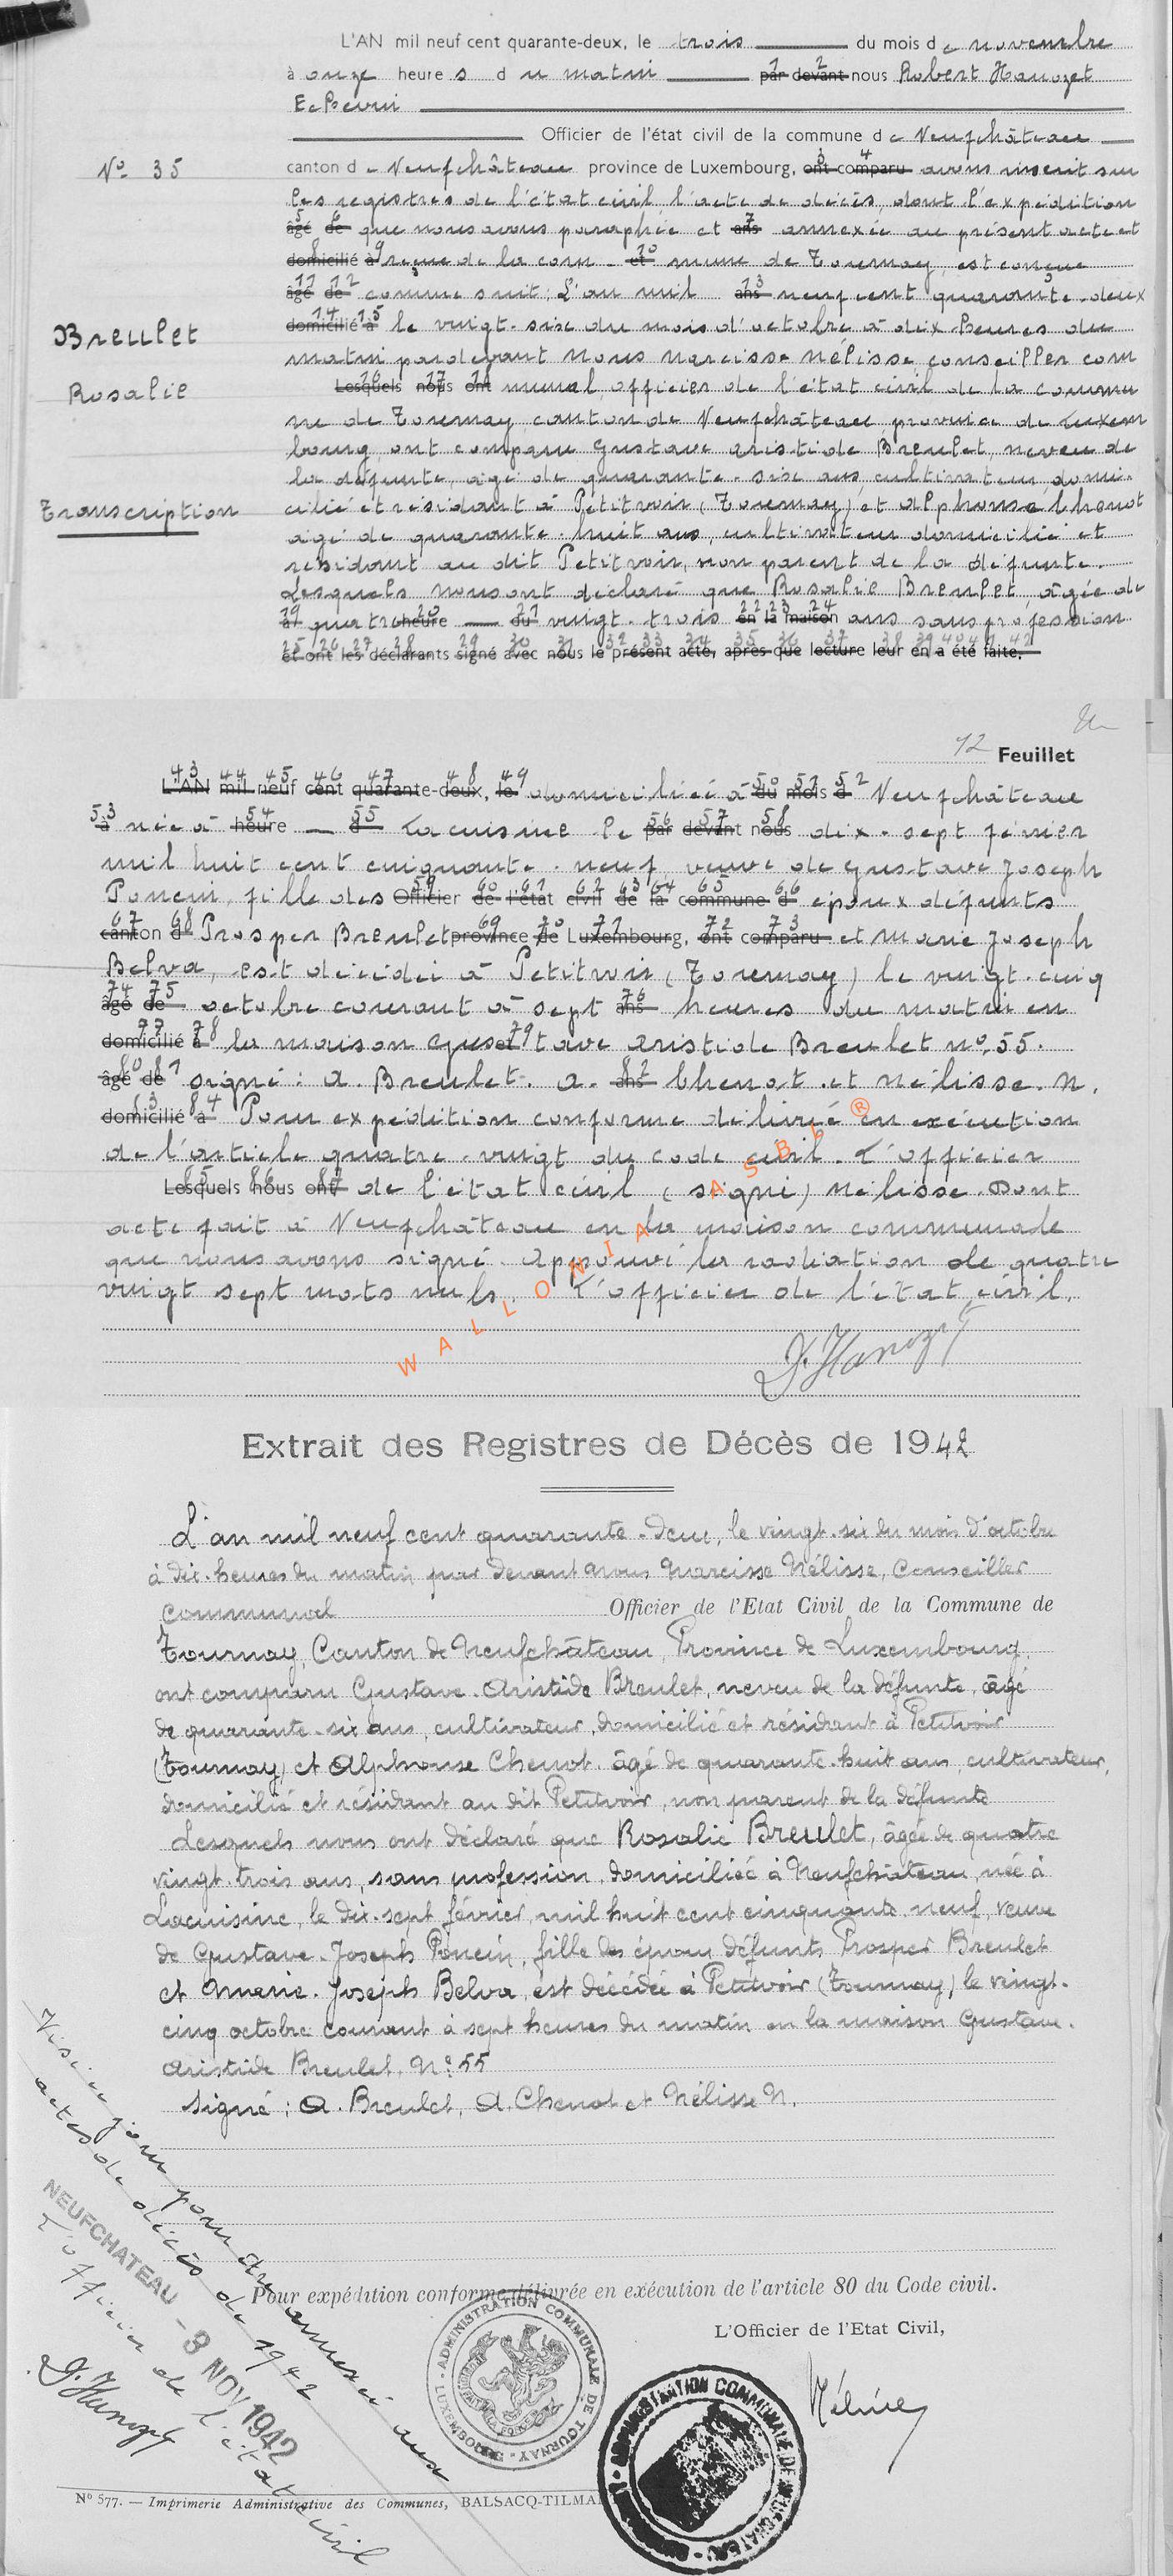 L'AN mil neuf cent quarante-deux, le trois du mois de novembre
à onze heures du matin par devant nous Robert Hanozet
Echevin
Officier de l'état civil de la commune de Neufchâteau
N° 35
canton de Neufchâteau province de Luxembourg, ont comparu avons inscrit sur
les registres de l'état civil, l'acte de décès, dont l'expédition
âgé de que nous avons paraphée et ans annexée au présent acte et
domicilié à reçue de la com- et mune de Tournay, est conçue
âgé de comme suit: L'an mil ans neuf cent quarante-deux
domicilié à le vingt-six du mois d'octobre à dix heures du
matin pardevant Nous Narcisse Nélisse conseiller com
Lesquels nous ont munal, officier de l'état civil de la commu
ne de Tournay canton de Neufchâteau, province de Luxem
bourg, ont comparu Gustave Aristide Breulet, neveu de
la défunte, âgé de quarante-six ans, cultivateur, domi-
cilié et résidant à Petitvoir (Tournay) et Alphonse Chenot
âgé de quarante-huit ans, cultivateur domicilié et
résidant au dit Petitvoir, non parent de la défunte.
Lesquels nous ont déclaré que Rosalie Breulet, âgée de
à quatre heure — du vingt-trois en la maison ans sans profession
et ont les déclarants signé avec nous le présent acte, après que lecture leur en a été faite.
Breulet
Rosalie
Transcription
12 Feuillet
L'AN mil neuf cent quarante-deux, le domiciliée à du mois d Neufchâteau
à née à heure — d Lacuisine le par devant nous dix-sept février
mil huit cent cinquante-neuf, veuve de Gustave Joseph
Poncin, fille des Officier de l'état civil de la commune d époux défunts
canton d Prosper Breulet province de Luxembourg, ont comparu et Marie Joseph
Belva, est décédée à Petitvoir (Tournay) le vingt-cinq
âgé de octobre courant à sept ans heures du matin en
domicilié à la maison Gus et tave Aristide Breulet n° 55.
âgé de signé: A. Breulet. A. ans Chenot et Nélisse. N.
domicilié à Pour expédition conforme délivrée en exécution
de l'article quatre-vingt du code civil. L'officier
Lesquels nous ont de l'état civil (signé) Nélisse. Dont
acte fait à Neufchâteau en la maison communale
que nous avons signé. Approuvé la radiation de quatre
vingt sept mots nuls. L'officier de l'état civil.
WALLONIA ASBL ®
Extrait des Registres de Décès de 1942
L'an mil neuf cent quarante-deux, le vingt-six du mois d'octobre
à dix heures du matin par devant Nous Narcisse Nélisse, Conseiller
Communal Officier de l'Etat Civil de la Commune de
Tournay, Canton de Neufchâteau, Province de Luxembourg,
ont comparu Gustave-Aristide Breulet, neveu de la défunte, âgé
de quarante-six ans, cultivateur, domicilié et résidant à Petitvoir
(Tournay) et Alphonse Chenot, âgé de quarante-huit ans, cultivateur,
domicilié et résidant au dit Petitvoir, non parent de la défunte
Lesquels nous ont déclaré que Rosalie Breulet, âgée de quatre
vingt-trois ans, sans profession, domiciliée à Neufchâteau, née à
Lacuisine, le dix-sept février, mil huit cent cinquante-neuf, veuve
de Gustave-Joseph Poncin, fille des époux défunts Prosper Breulet
et Marie-Joseph Belva, est décédée à Petitvoir (Tournay) le vingt-
cinq octobre courant à sept heures du matin en la maison Gustave-
Aristide Breulet, N° 55
Signé: A. Breulet, A. Chenot et Nélisse N.
Visé pour être annexé aux
actes de décès de 1942
NEUFCHATEAU - 3 NOV 1942
L'officier de l'état civil
Pour expédition conforme délivrée en exécution de l'article 80 du Code civil.
L'Officier de l'Etat Civil,
Nélisse
ADMINISTRATION COMMUNALE DE TOURNAY - LUXEMBOURG
ADMINISTRATION COMMUNALE DE NEUFCHATEAU
N° 577. — Imprimerie Administrative des Communes, BALSACQ-TILMA